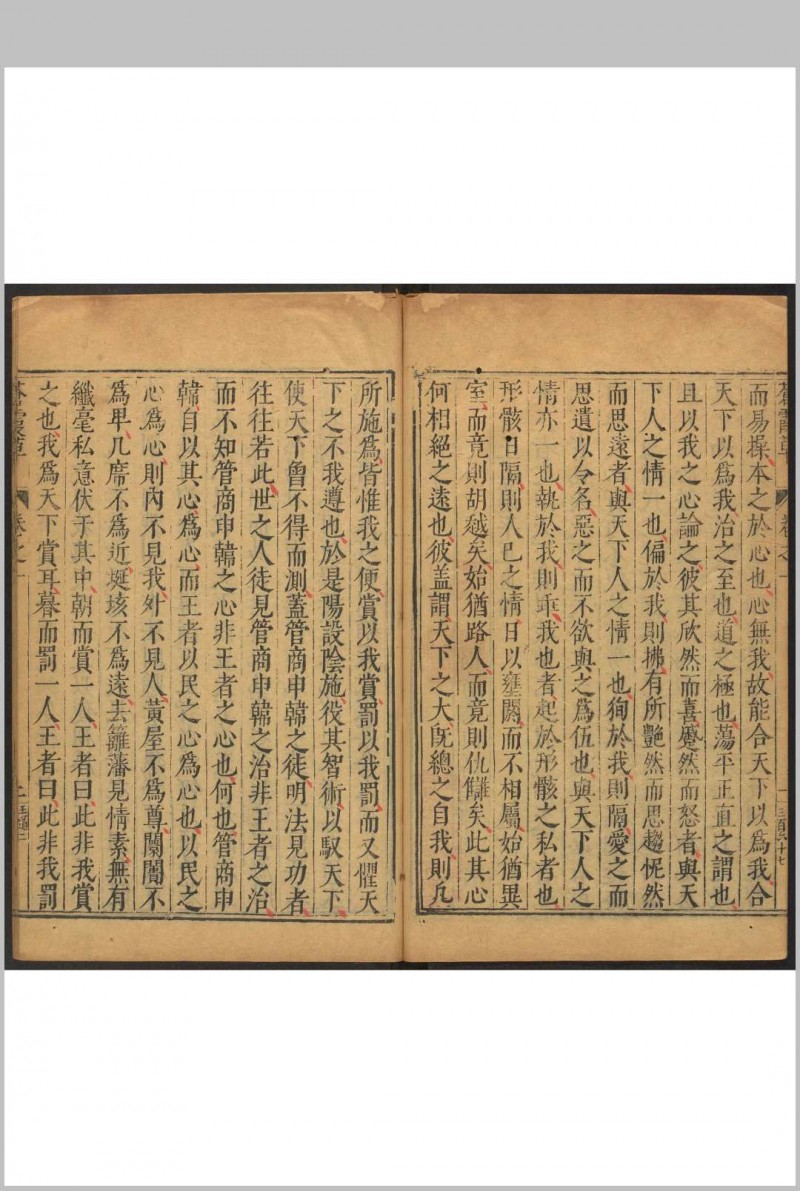 而易操本之於心也心無我故能合天下以為我合
天下以為我治之至也道之極也蕩平正直之謂也
且以我之心論之彼其欣然而喜蹙然而怒者與天
下人之情一也偏於我則拂有所艷然而思趨怩然
而思遠者與天下人之情一也狥於我則隔愛之而
思遺以令名惡之而不欲與之為伍也與天下人之
情亦一也執於我則乖我也者起於形骸之私者也
形骸日隔則人巳之情日以壅閼而不相屬始猶異
室而竟則胡越矣始猶路人而竟則仇讎矣此其心
何相絶之遠也彼盖謂天下之大旣總之自我則凡
所施爲皆惟我之便賞以我賞罰以我罰而又懼天
下之不我遵也於是陽設陰施役其智術以馭天下
使天下曾不得而測蓋管商申韓之徒明法見功者
往往若此世之人徒見管商申韓之治非王者之治
而不知管商申韓之心非王者之心也何也管商申
韓自以其心爲心而王者以民之心爲心也以民之
心爲心則内不見我外不見人黃屋不爲尊闤闠不
爲卑几席不爲近埏垓不爲遠去籬藩見情素無有
纖毫私意伏于其中朝而賞一人王者曰此非我賞
之也我爲天下賞耳暮而罰一人王者曰此非我罰
蒼霞草
卷之一